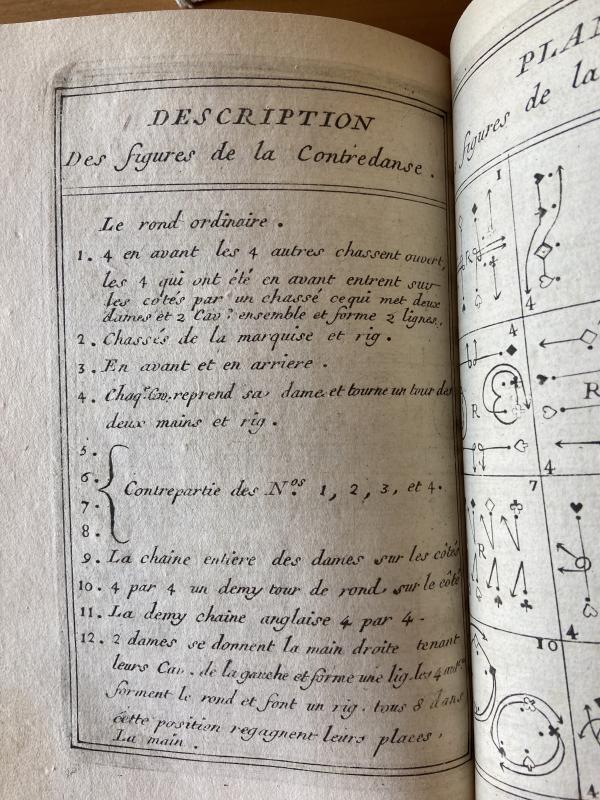 DESCRIPTION
Des figures de la Contredanse.
Le rond ordinaire.
1. 4 en avant les 4 autres chassent ouvert,
les 4 qui ont été en avant entrent sur
les côtés par un chassé ce qui met deux
dames et 2 Cav.s ensemble et forme 2 lignes.
2. Chassés de la marquise et rig.
3. En avant et en arriere.
4. Chaq.e Cav. reprend sa dame et tourne un tour des
deux mains et rig.
5.
6.
7.
8.
Contrepartie des N.os 1, 2, 3, et 4.
9. La chaîne entiere des dames sur les côtés
10. 4 par 4 un demy tour de rond sur le côté
11. La demy chaîne anglaise 4 par 4-
12. 2 dames se donnent la main droite tenant
leurs Cav. de la gauche et forme une lig. les 4
forment le rond et font un rig. tous 8 dans
cette position regagnent leurs places,
La main.
PLAN
figures de la
1
R
4
4
R
4
R
7
R
4
10
4